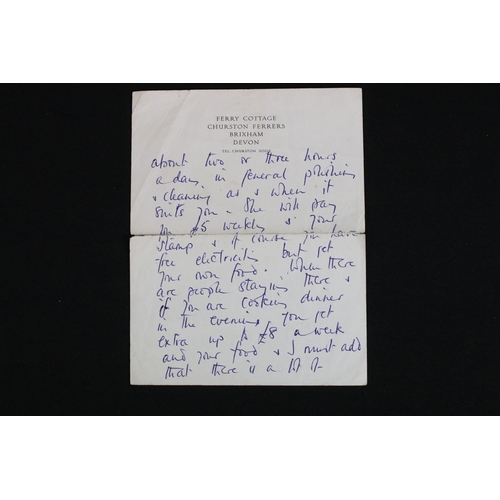 FERRY COTTAGE
CHURSTON FERRERS
BRIXHAM
DEVON
TEL. CHURSTON
about two or three hours
a day, in general polishing
& cleaning as & when it
suits you. She will pay
you £5 weekly & your
stamp & of course you have
free electricity but get
your own food. When there
are people staying there &
if you are cooking dinner
in the evening, you get
extra up to £8 a week
and your food & I must add
that there is a lot of